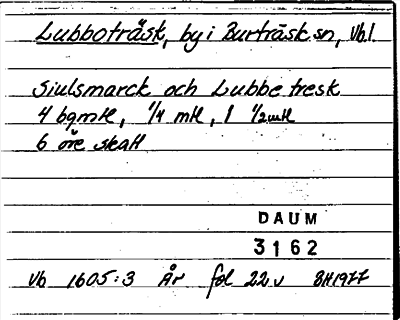 Lubboträsk, by i Burträsk sn, Vbl.
Siulsmarck och Lubbe tresk
4 bgmtl, 1/4 mtl, 1 1/2 mtl
6 öre skatt
DAUM
3162
Vb 1605:3 År fol 22 v BH1977